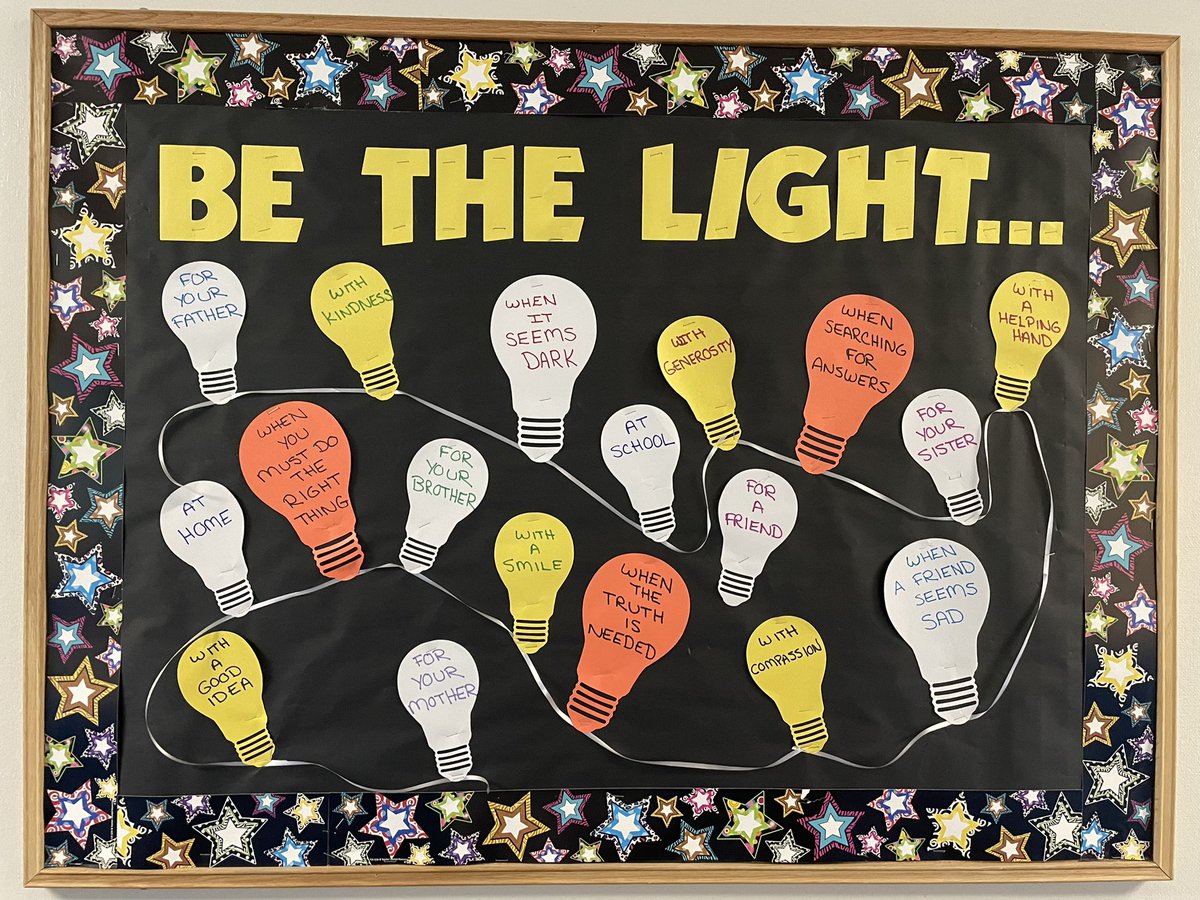 BE THE LIGHT...
FOR
YOUR
FATHER
WITH
KINDNESS
WHEN
IT
SEEMS
DARK
WITH
GENEROSITY
WHEN
SEARCHING
FOR
ANSWERS
WITH
A
HELPING
HAND
WHEN
YOU
MUST DO
THE
RIGHT
THING
FOR
YOUR
BROTHER
AT
SCHOOL
FOR
YOUR
SISTER
AT
HOME
WITH
A
SMILE
FOR
A
FRIEND
WHEN
THE
TRUTH
IS
NEEDED
WHEN
A FRIEND
SEEMS
SAD
WITH
A
GOOD
IDEA
FOR
YOUR
MOTHER
WITH
COMPASSION